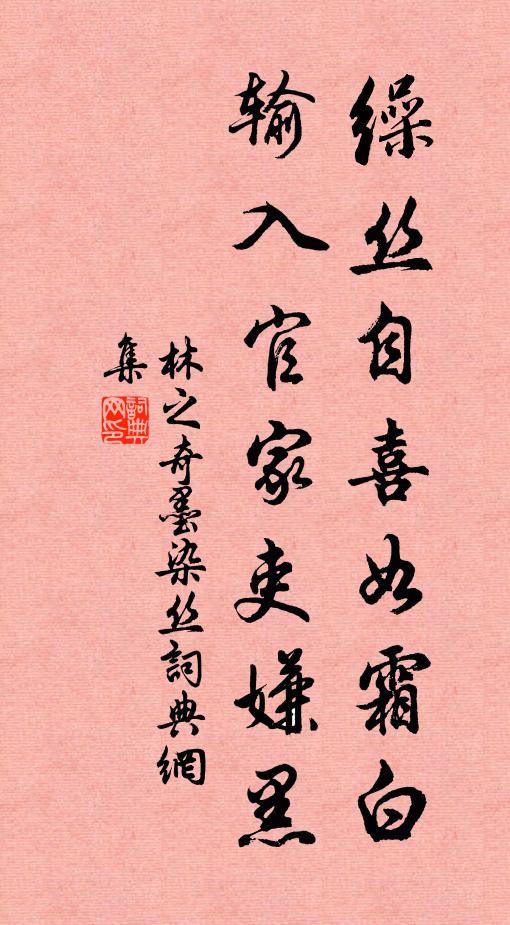 缲丝自喜如霜白
输入官家吏嫌黑
林之奇墨染丝詞典網
集
詞典网印